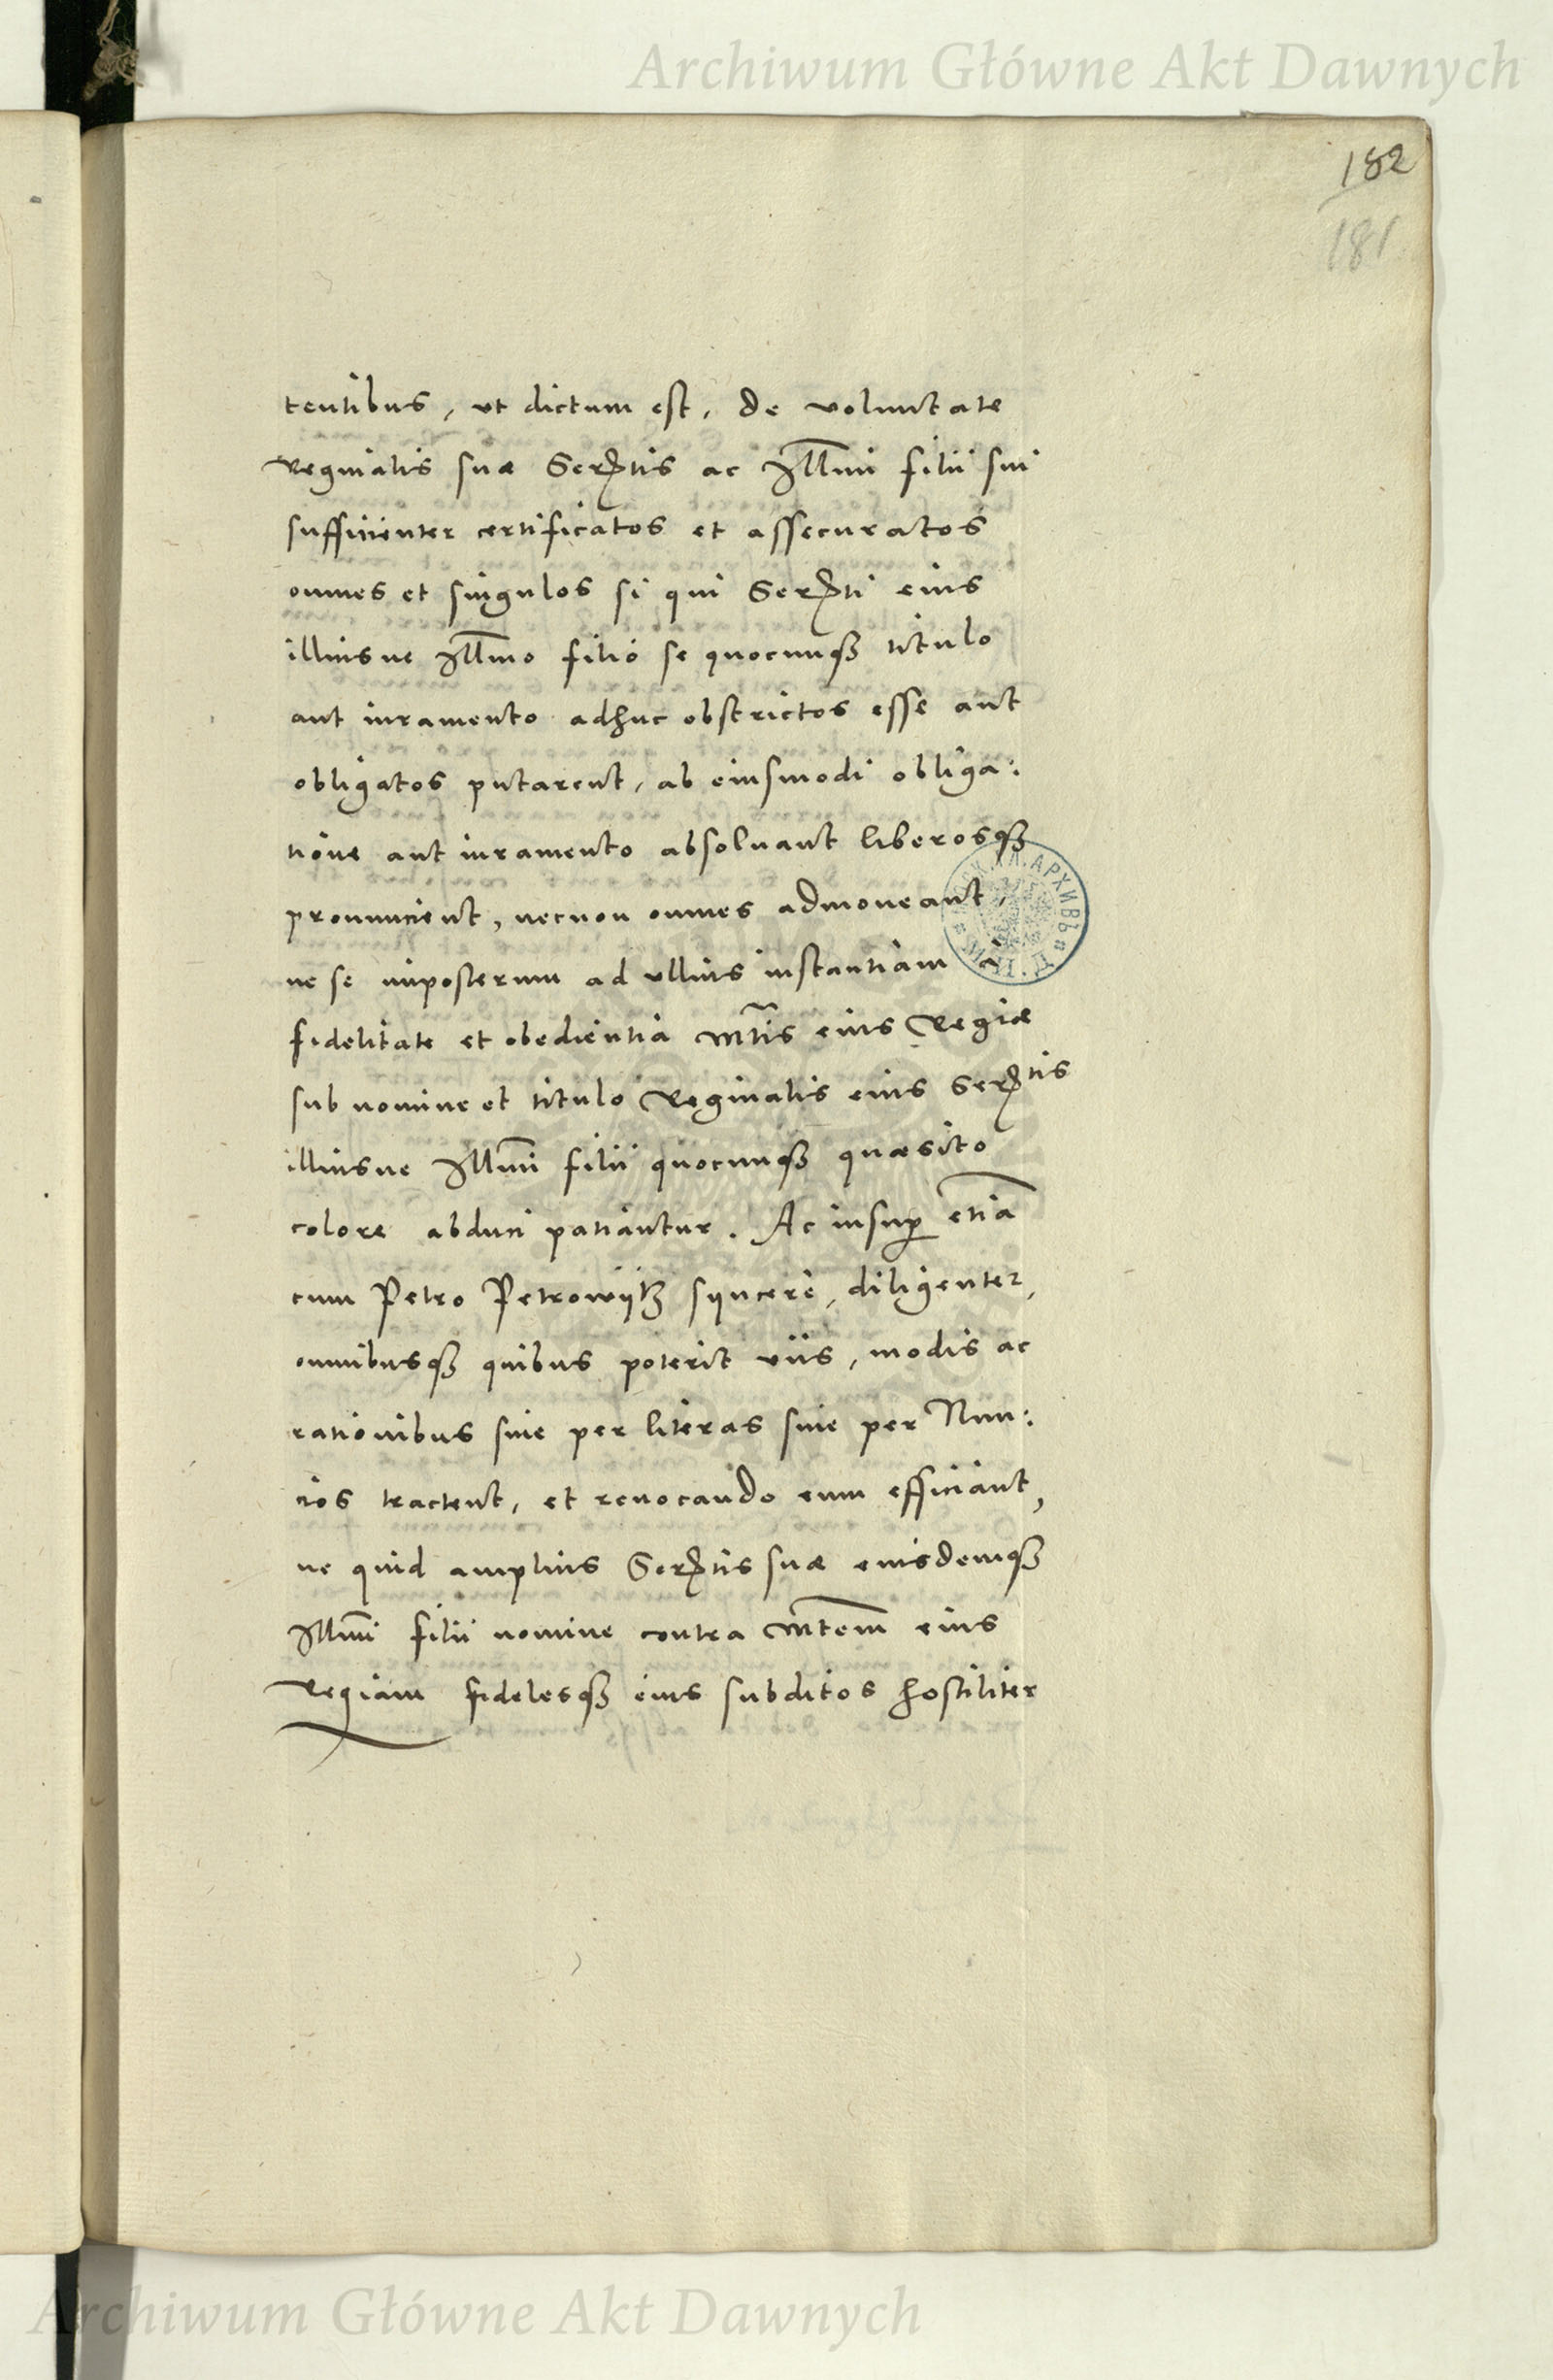 Archiwum Główne Akt Dawnych
182
181
tentibus, ut dictum est, de voluntate
Reginalis suæ Serᵗⁱs ac Illmi filii sui
sufficienter certificatos et assecuratos
omnes et singulos si qui Serᵗⁱ eius
illiusve Illmo filio se quocunqȝ titulo
aut iuramento adhuc obstrictos esse aut
obligatos putarent, ab eiusmodi obliga:
tione aut iuramento absolvant liberosqȝ
pronuncient, necnon omnes admoneant,
ne se imposterum ad ullius instantiam à
fidelitate et obedientia Mtis eius Regiæ
sub nomine et titulo Reginalis eius Serᵗⁱs
illiusve Illmi filii quocunqȝ quæsito
colore abduci patiantur. Ac insup etiā
cum Petro Petrowÿtz sÿncerè, diligenter,
omnibusqȝ quibus poterit viis, modis ac
rationibus sive per literas sive per Nun:
cios tractent, et revocando eum efficiant,
ne quid amplius Serᵗⁱs suæ eiusdemqȝ
Illmi filii nomine contra Mtem eius
Regiam fidelesqȝ eius subditos hostiliter
Archiwum Główne Akt Dawnych